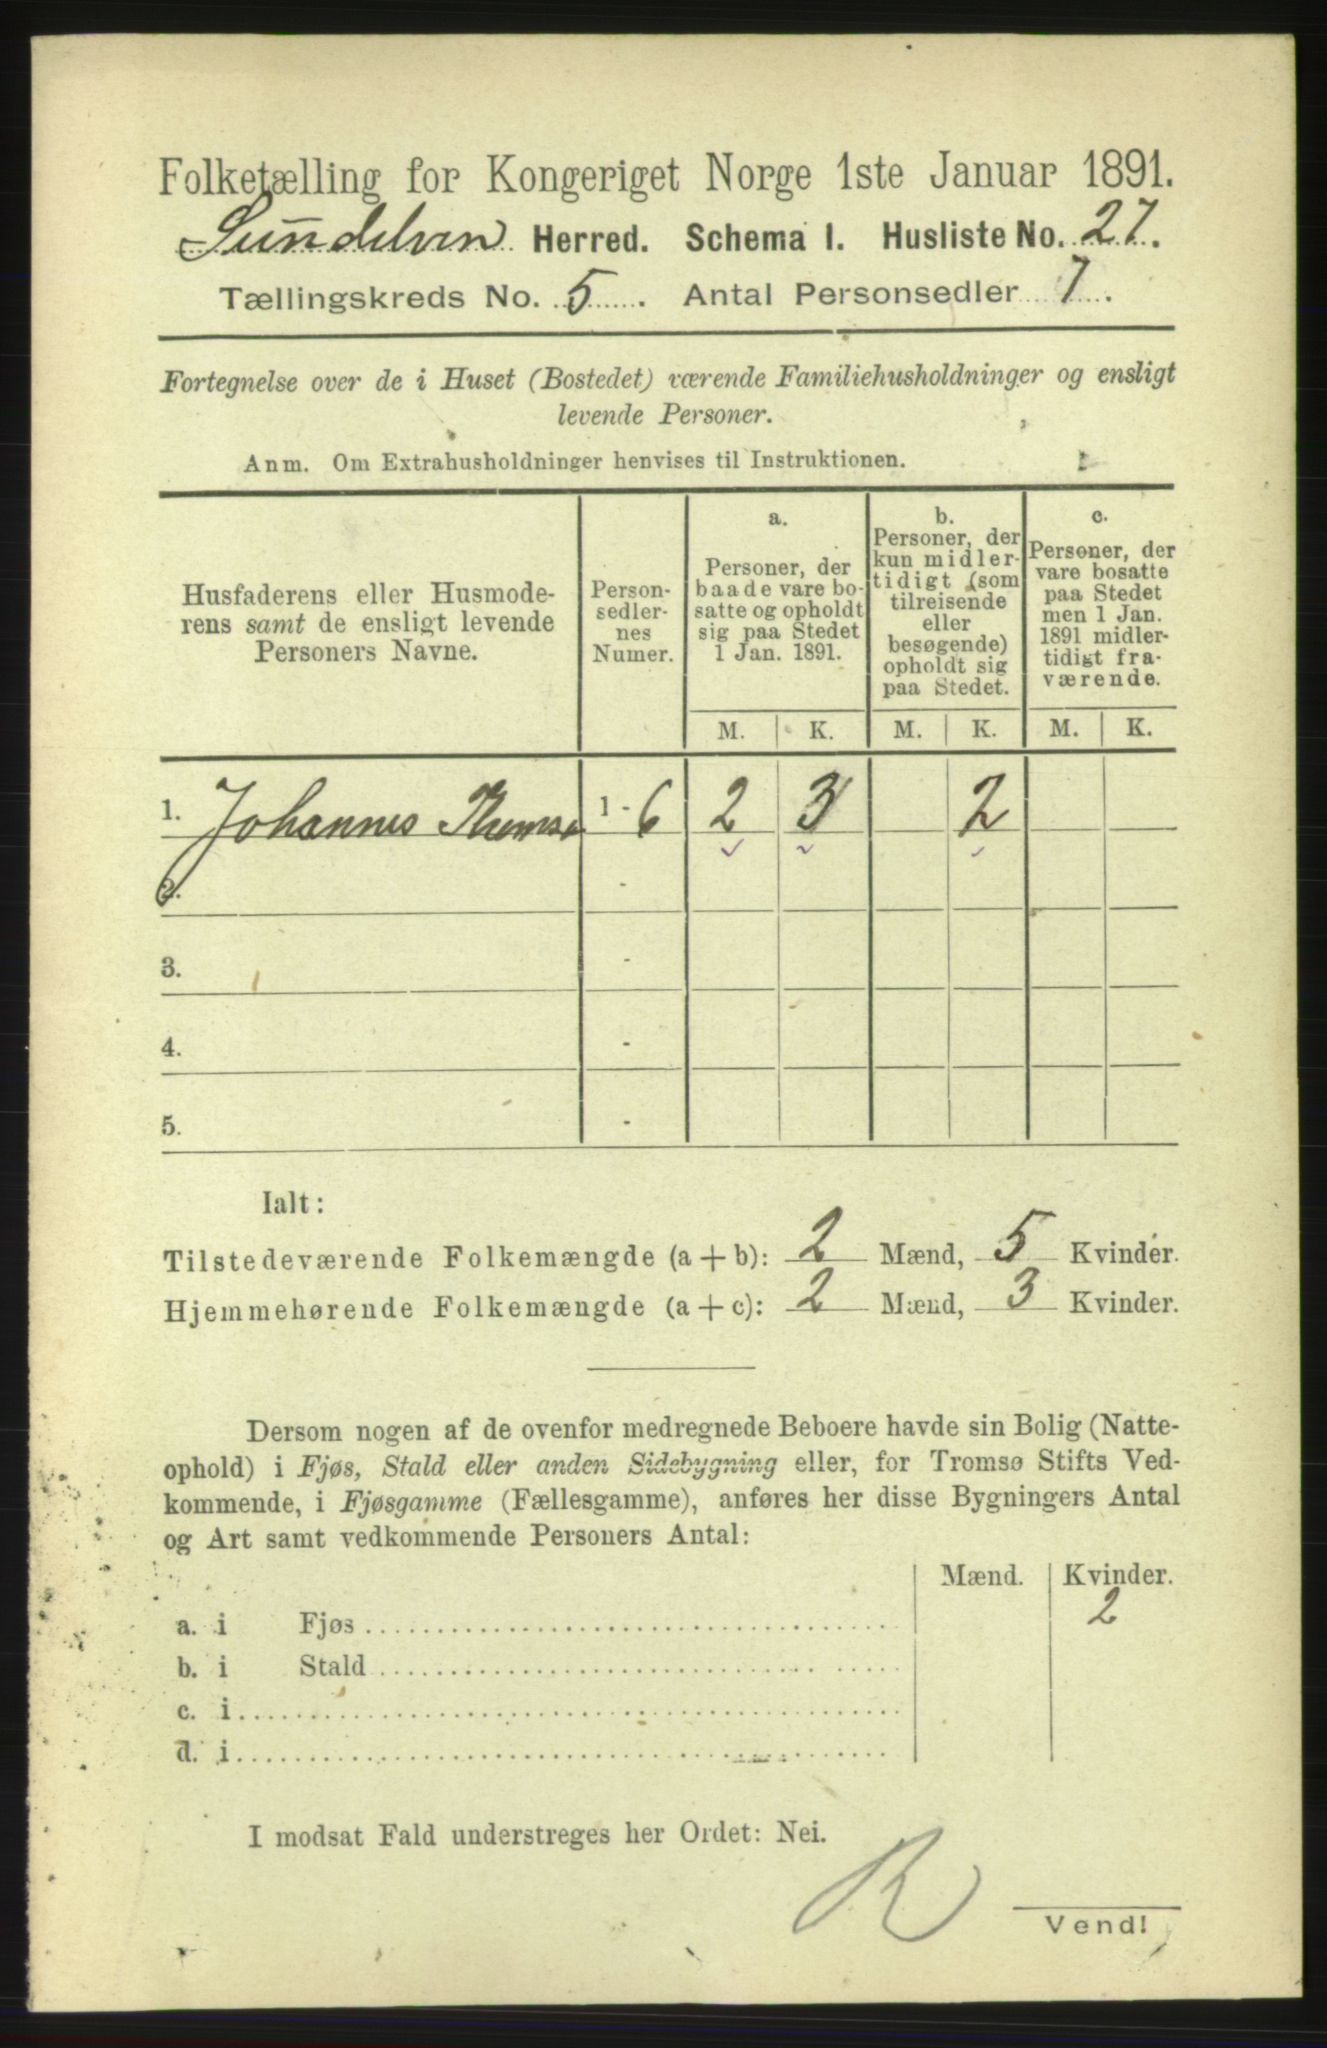 Folketælling for Kongeriget Norge 1ste Januar 1891.
Sundelven Herred. Schema I. Husliste No. 27.
Tællingskreds No. 5. Antal Personsedler 7.
Fortegnelse over de i Huset (Bostedet) værende Familiehusholdninger og ensligt
levende Personer.
Anm. Om Extrahusholdninger henvises til Instruktionen.
Husfaderens eller Husmode-
rens samt de ensligt levende
Personers Navne.
Person-
sedler-
nes
Numer.
a.
Personer, der
baade vare bo-
satte og opholdt
sig paa Stedet
1 Jan. 1891.
b.
Personer, der
kun midler-
tidigt (som
tilreisende
eller
besøgende)
opholdt sig
paa Stedet.
c.
Personer, der
vare bosatte
paa Stedet
men 1 Jan.
1891 midler-
tidigt fra-
værende.
M. K. M. K. M. K.
1. Johannes 1 - 6 2 3 2
2. -
3. -
4. -
5. -
Ialt:
Tilstedeværende Folkemængde (a + b): 2 Mænd, 5 Kvinder.
Hjemmehørende Folkemængde (a + c): 2 Mænd, 3 Kvinder.
Dersom nogen af de ovenfor medregnede Beboere havde sin Bolig (Natte-
ophold) i Fjøs, Stald eller anden Sidebygning eller, for Tromsø Stifts Ved-
kommende, i Fjøsgamme (Fællesgamme), anføres her disse Bygningers Antal
og Art samt vedkommende Personers Antal:
Mænd. Kvinder.
a. i Fjøs 2
b. i Stald
c. i
d. i
I modsat Fald understreges her Ordet: Nei.
R
Vend!